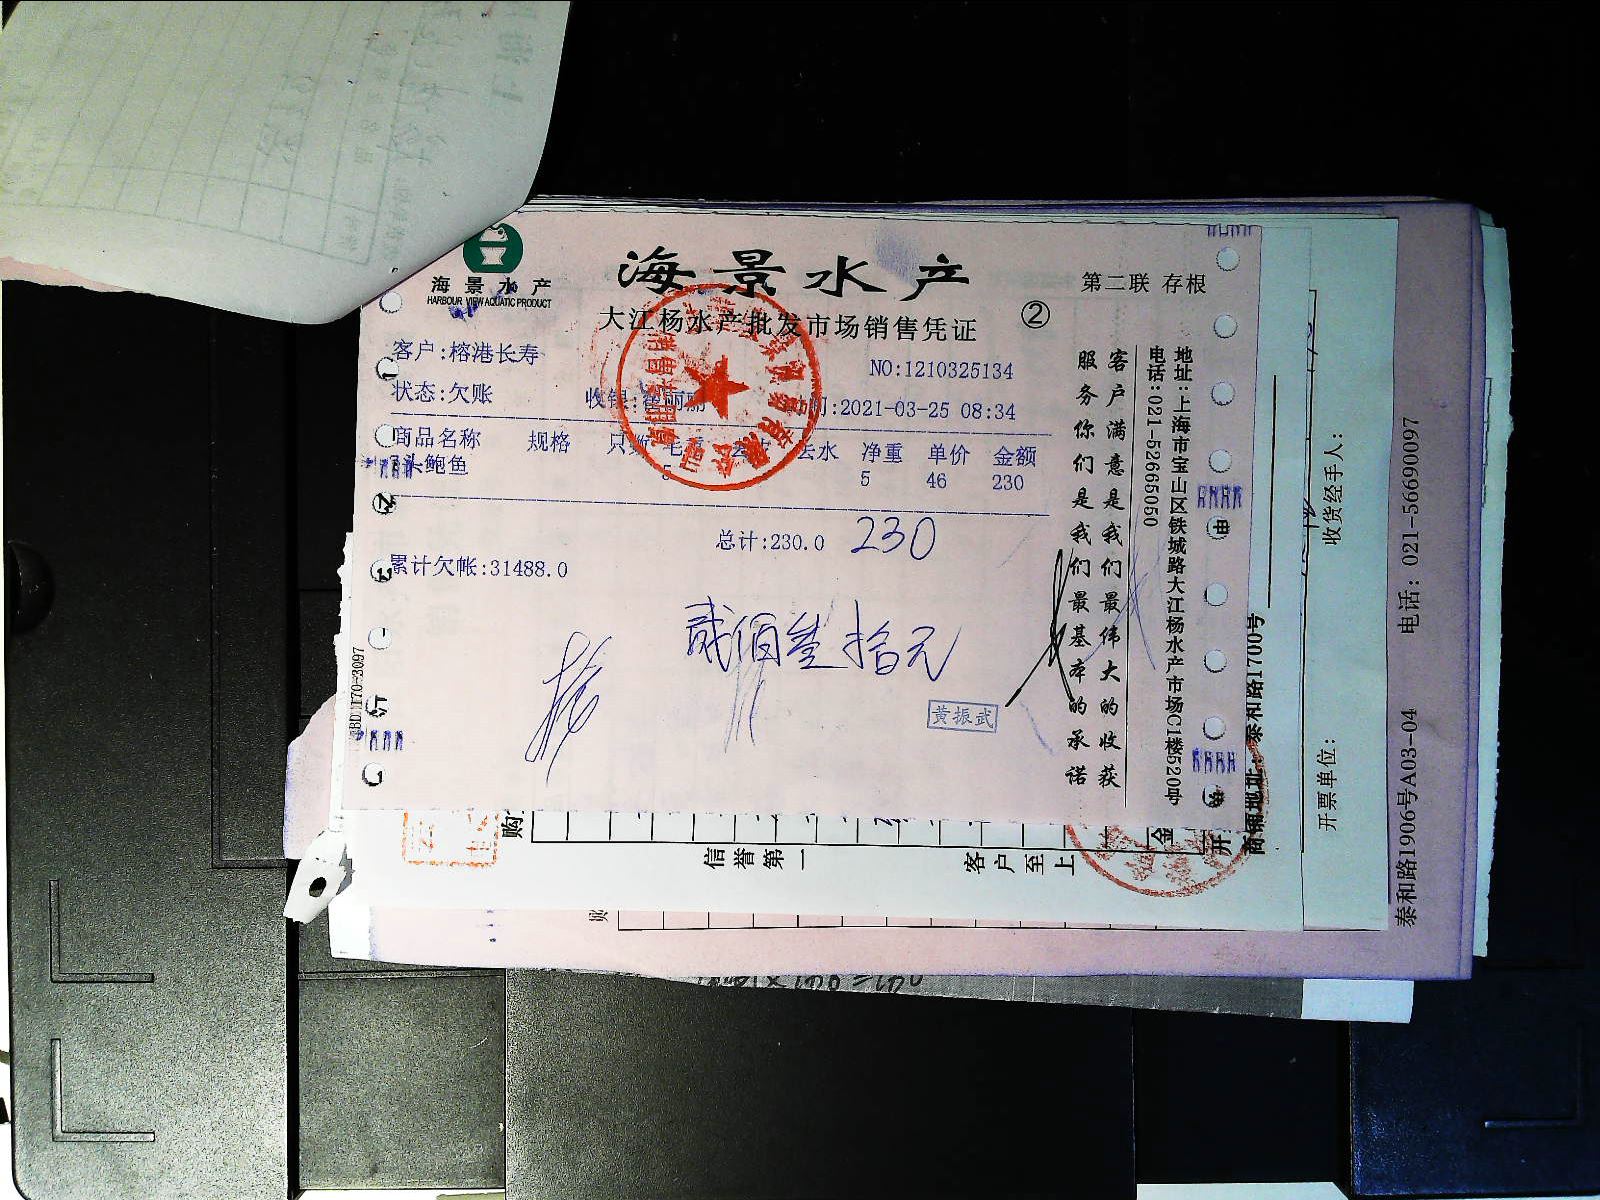 海景水产
HARBOUR VIEW AQUATIC PRODUCT
海景水产
大江杨水产批发市场销售凭证
②
第二联 存根
客户:榕港长寿
NO:1210325134
状态:欠账
收银:
:2021-03-25 08:34
商品名称 规格 只数 毛重 去水 净重 单价 金额
头鲍鱼 5 5 46 230
总计:230.0 230
累计欠帐:31488.0
贰佰叁拾元
黄振武
客户满意是我们最伟大的收获
服务你们是我们最基本的承诺
地址:上海市宝山区铁城路大江杨水产市场C1楼520号
电话:021-52665050
商铺地址:泰和路1700号
信誉第一 客户至上
购
金
开
收货经手人:
开票单位:
泰和路1906号A03-04 电话: 021-56690097